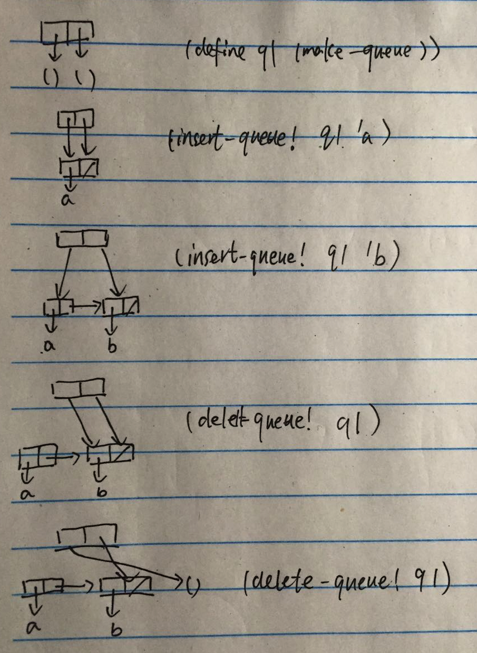 (define q1 (make-queue))
() ()
(insert-queue! q1 'a)
a
(insert-queue! q1 'b)
a b
(delete-queue! q1)
a b
() (delete-queue! q1)
a b